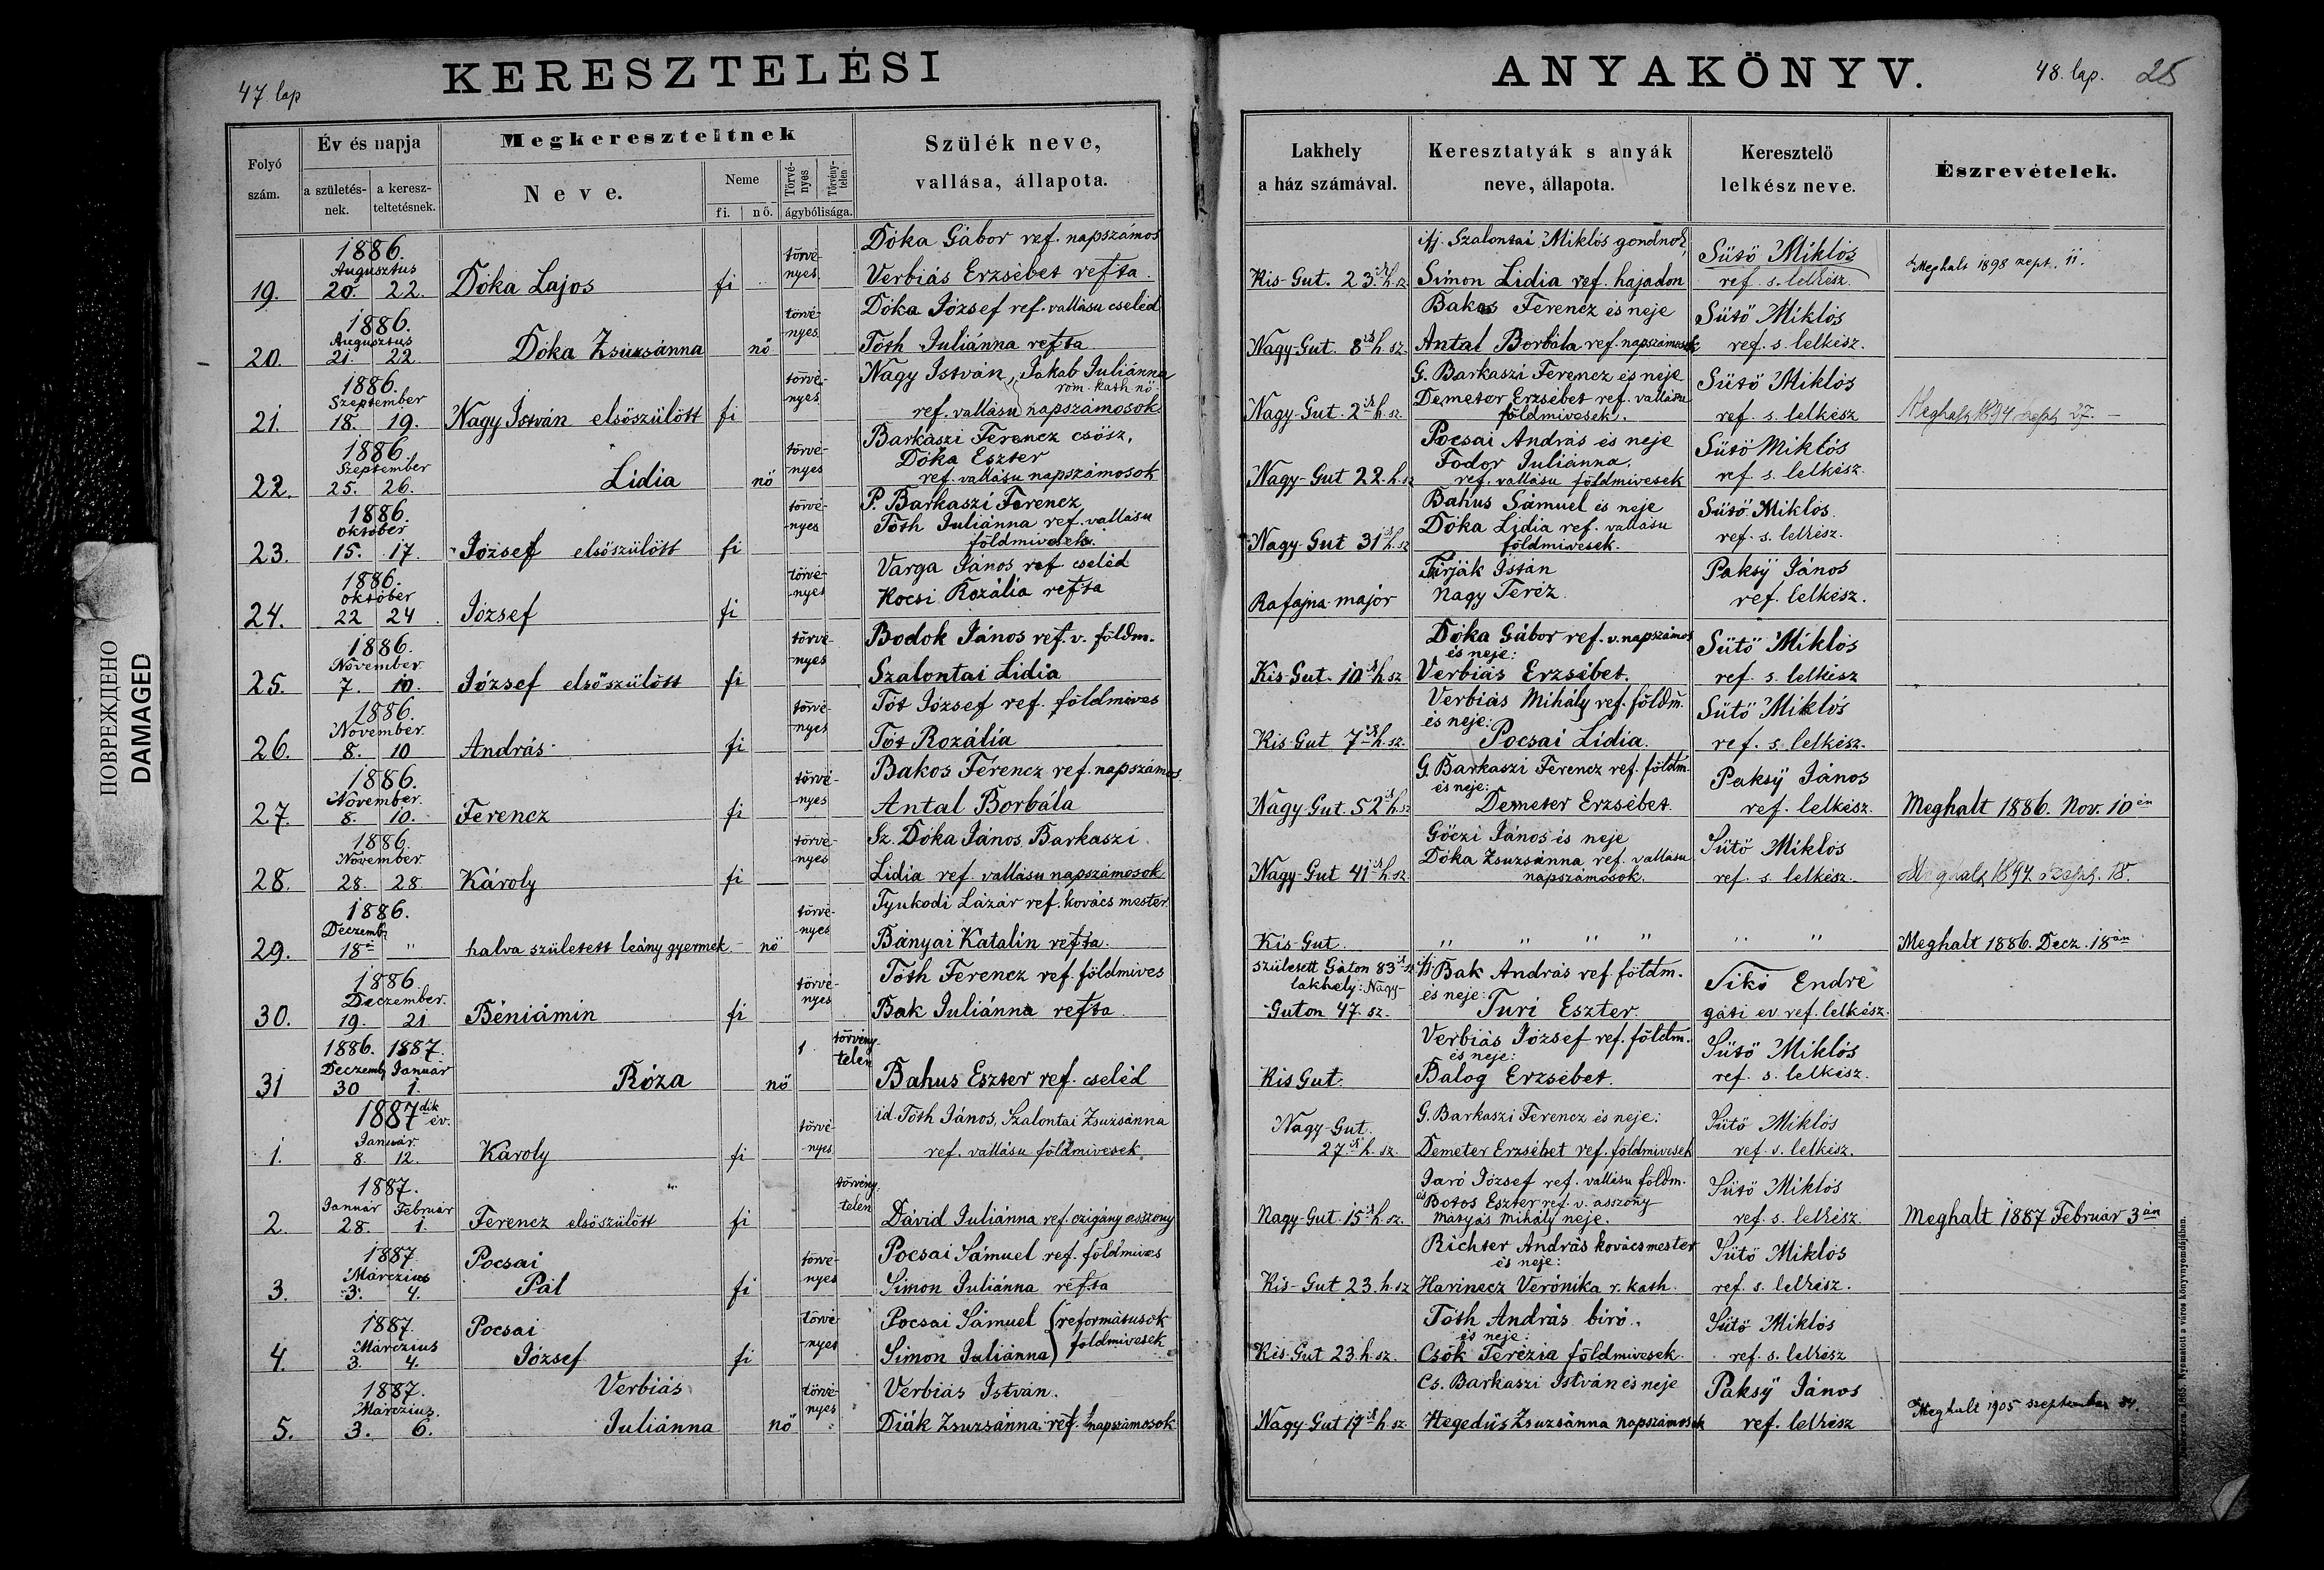 47 lap
KERESZTELÉSI
Folyó szám.
Év és napja
a születés-nek.
a keresz-teltetésnek.
Megkereszteltnek
Neve.
Neme
fi. nő.
Törvé-nyes
Törvény-telen
ágybólisága.
Szülék neve,
vallása, állapota.
ANYAKÖNYV.
48. lap. 25
Lakhely
a ház számával.
Keresztatyák s anyák
neve, állapota.
Keresztelő
lelkész neve.
Észrevételek.
1886.
Augusztus
19. 20. 22. Dóka Lajos fi törvé-nyes
Dóka Gábor ref. napszámos
Verbiás Erzsébet refta.
Kis-Gut. 23ik h. sz.
ifj. Szalontai Miklós gondnok,
Simon Lidia ref. hajadon
Sütő Miklós
ref. s. lelkész.
Meghalt 1898 szept. 11.
1886.
Augusztus
20. 21. 22. Dóka Zsuzsánna nő törvé-nyes
Dóka József ref. vallásu cseléd
Tóth Juliánna refta.
Nagy-Gut. 8ik h. sz.
Bakos Ferencz és neje
Antal Borbála ref. napszámosok
Sütő Miklós
ref. s. lelkész.
1886.
Szeptember
21. 18. 19. Nagy István elsőszülött fi törvé-nyes
Nagy István, Jakab Juliánna
róm. kath. nő
ref. vallásu napszámosok
Nagy-Gut. 2ik h. sz.
G. Barkaszi Ferencz és neje
Demeter Erzsébet ref. vallásu
földmivesek.
Sütő Miklós
ref. s. lelkész
Meghalt 1894 szept 27.
1886.
Szeptember
22. 25. 26. Lidia nő törvé-nyes
Barkaszi Ferencz csősz,
Dóka Eszter
ref. vallásu napszámosok
Nagy-Gut 22. h. sz
Pocsai András és neje
Fodor Juliánna,
ref. vallásu földmivesek
Sütő Miklós
ref s. lelkész.
1886.
október
23. 15. 17. József elsőszülött fi törvé-nyes
P. Barkaszi Ferencz
Tóth Juliánna ref. vallásu
földmivesek.
Nagy-Gut 31ik h. sz
Bahus Sámuel és neje
Dóka Lidia ref. vallásu
földmivesek.
Sütő Miklós.
ref. s. lelkész.
1886.
október
24. 22 24 József fi törvé-nyes
Varga János ref cseléd
Kocsi Rozália refta
Rafajna-major
Firják Istán
Nagy Teréz.
Paksÿ János
ref. lelkész.
1886.
November.
25. 7. 10. József elsőszülött fi törvé-nyes
Bodok János ref. v. földm.
Szalontai Lidia
Kis-Gut. 10ik h. sz
Dóka Gábor ref. v. napszámos
és neje:
Verbiás Erzsébet.
Sütő Miklós
ref. s. lelkész
1886.
November.
26. 8. 10 András fi törvé-nyes
Tót József ref. földmives
Tót Rozália
Kis-Gut 7ik h. sz.
Verbiás Mihály ref. földm.
és neje:
Pocsai Lidia.
Sütő Miklós
ref. s. lelkész.
1886.
November.
27. 8. 10. Ferencz fi törvé-nyes
Bakos Ferencz ref. napszámos
Antal Borbála
Nagy-Gut. 52ik h. sz
G. Barkaszi Ferencz ref. földm.
és neje:
Demeter Erzsébet.
Paksÿ János
ref. lelkész.
Meghalt 1886. Nov. 10én
1886.
November
28. 28. 28. Károly fi törvé-nyes
Sz. Dóka János, Barkaszi
Lidia ref. vallásu napszámosok
Nagy-Gut 41ik h. sz.
Góczi János és neje
Dóka Zsuzsánna ref. vallásu
napszámosok.
Sütő Miklós
ref. s. lelkész.
Meghalt 1897 szept. 18.
1886.
Deczemb.
29. 18án " halva született leány gyermek nő törvé-nyes
Tyukodi Lázár ref. kovács mester
Bányai Katalin refta.
Kis-Gut.
" " " " " "
Meghalt 1886. Decz. 18án
1886.
Deczember.
30. 19. 21 Béniámin fi törvé-nyes
Tóth Ferencz ref. földmives
Bak Juliánna refta.
született Gáton 83ik sz.
lakhely: Nagy-
Guton 47. sz.
ifj. Bak András ref. földm.
és neje:
Turi Eszter.
Sikó Endre
gáti ev. ref. lelkész.
1886. 1887.
Deczemb. Január
31 30 1. Róza nő 1 törvény-telen
Bahus Eszter ref. cseléd
Kis Gut.
Verbiás József ref. földm.
és neje:
Balog Erzsébet.
Sütő Miklós
ref. s. lelkész.
1887dik év.
Január.
1. 8. 12. Károly fi törvé-nyes
id. Tóth János, Szalontai Zsuzsánna
ref. vallásu földmivesek.
Nagy-Gut.
27ik h. sz.
G. Barkaszi Ferencz és neje:
Demeter Erzsébet ref. földmivesek
Sütő Miklós
ref. s. lelkész.
1887.
Január Február
2. 28. 1. Ferencz elsőszülött fi törvény-telen
Dávid Juliánna ref. czigány asszony
Nagy-Gut. 15ik h. sz.
Jaró József ref. vallásu földm.
és Botos Eszter ref. v. asszony
Mátyás Mihály neje.
Sütő Miklós
ref. s. lelkész.
Meghalt 1887 Február 3án
1887
Márczius
3. 3. 4. Pocsai
Pál fi törvé-nyes
Pocsai Sámuel ref. földmives
Simon Juliánna refta
Kis-Gut 23. h. sz
Richter András kovácsmester
és neje:
Harinecz Verónika r. kath.
Sütő Miklós
ref. s. lelkész.
1887.
Márczius
4. 3. 4. Pocsai
József fi törvé-nyes
Pocsai Sámuel reformátusok
Simon Juliánna földmivesek
Kis-Gut 23. h. sz.
Tóth András biró.
és neje:
Csók Terézia földmivesek.
Sütő Miklós
ref. s. lelkész
1887.
Márczius.
5. 3. 6. Verbiás
Juliánna nő törvé-nyes
Verbiás István.
Diák Zsuzsánna ref. napszámosok
Nagy-Gut 19ik h. sz.
Cs. Barkaszi István és neje
Hegedüs Zsuzsánna napszámosok
Paksÿ János
ref. lelkész
Meghalt 1905 szeptember
1865. Nyomatott a város könyvnyomdájában.
ПОВРЕЖДЕНО
DAMAGED